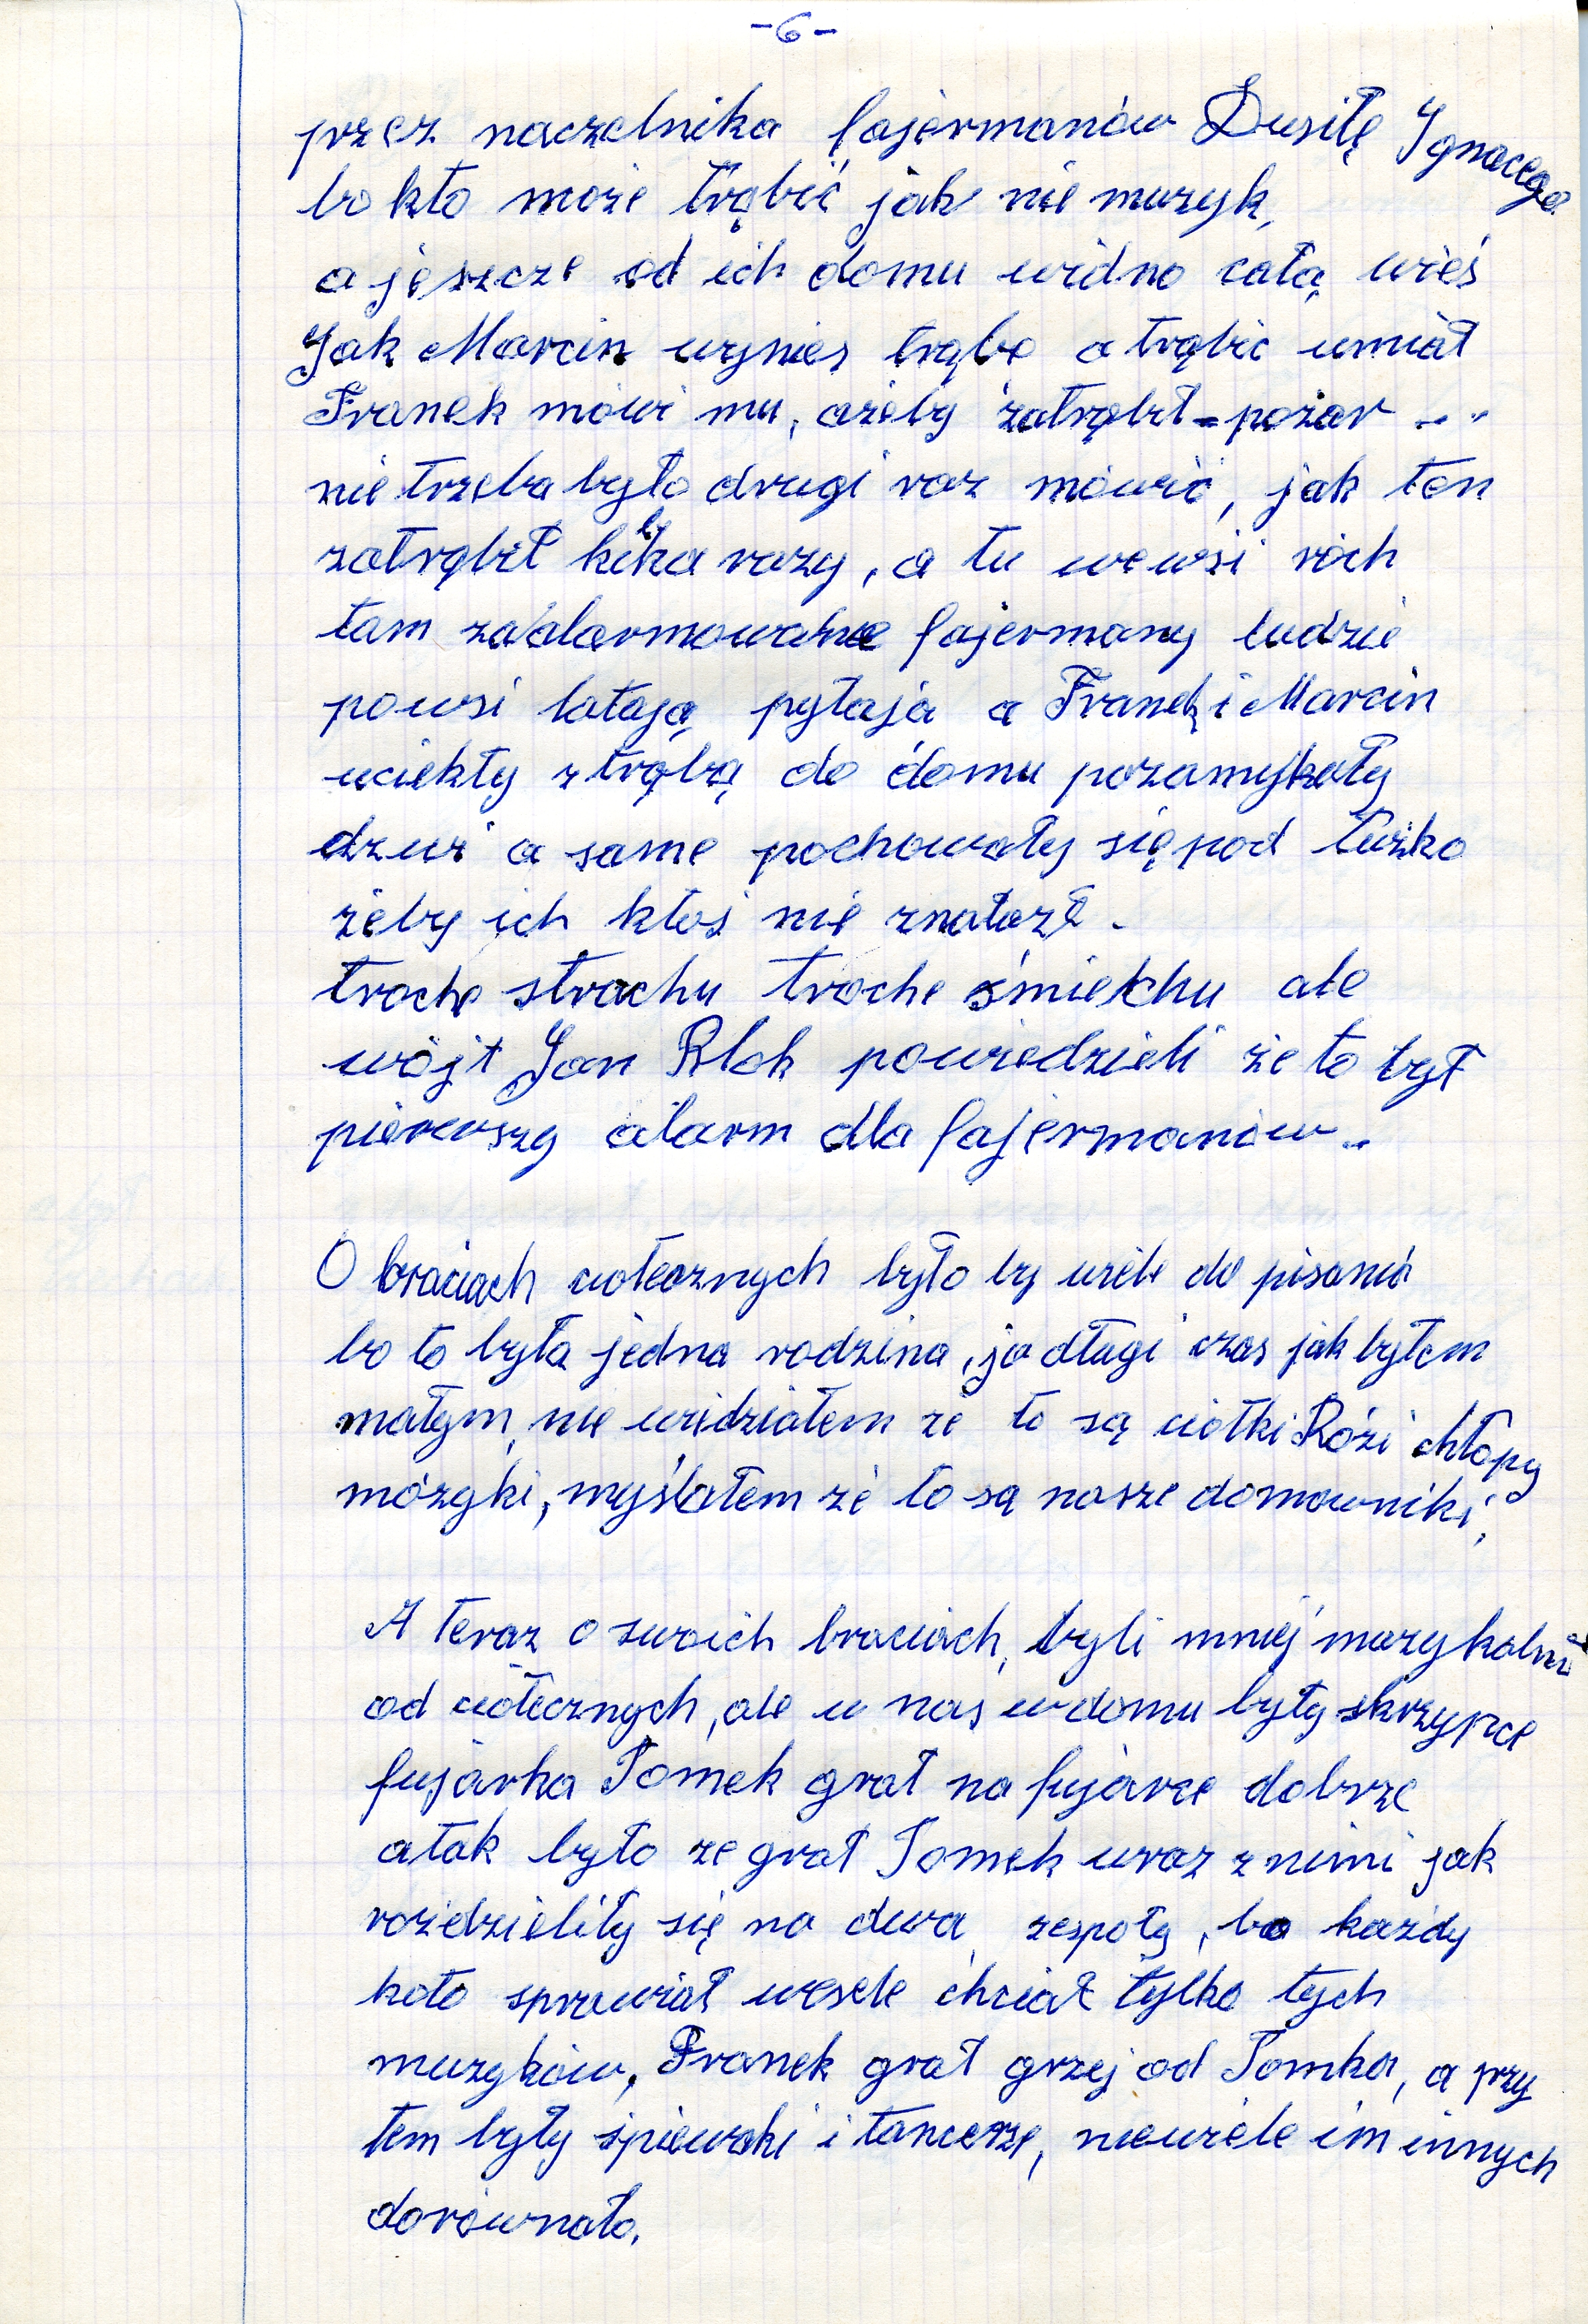 -6-
przez naczelnika fajermanów Dusiłę Ignacego
bo kto może trąbić jak nie muzyk,
a jeszcze od ich domu widno całą wieś
Jak Marcin wynies trąbe a trąbić umiał
Franek mówi mu, ażeby zatrąbił - pożar ...
nie trzeba było drugi raz mówić, jak ten
zatrąbił kilka razy, a tu we wsi róch
tam zaalarmowane fajermany ludzie
po wsi latają pytają a Franek i Marcin
uciekły z trąbą do domu pozamykały
dzwi a same pochowały się pod łużko
żeby ich ktoś nie znalazł.
troche strachu troche śmiechu ale
wójt Jan Blok powiedzieli że to był
pierwszy alarm dla fajermanów..
O braciach ciotecznych było by wiele do pisania
bo to była jedna rodzina, ja długi czas jak byłem
małym, nie widziałem że to są ciotki Rózi chłopy
mózyki, myślałem że to są nasze domowniki,
A teraz o swoich braciach, byli mniej muzykalni
od ciotecznych, ale u nas w domu były skrzypce
fujarka Tomek grał na fujarce dobrze
a tak było że grał Tomek wraz z nimi jak
rozdzieliły się na dwa zespoły, bo każdy
koto sprawiał wesele chciał tylko tych
muzyków, Franek grał grzej od Tomka, a przy
tem były śpiewaki i tancerze, niewiele im innych
dorównało.